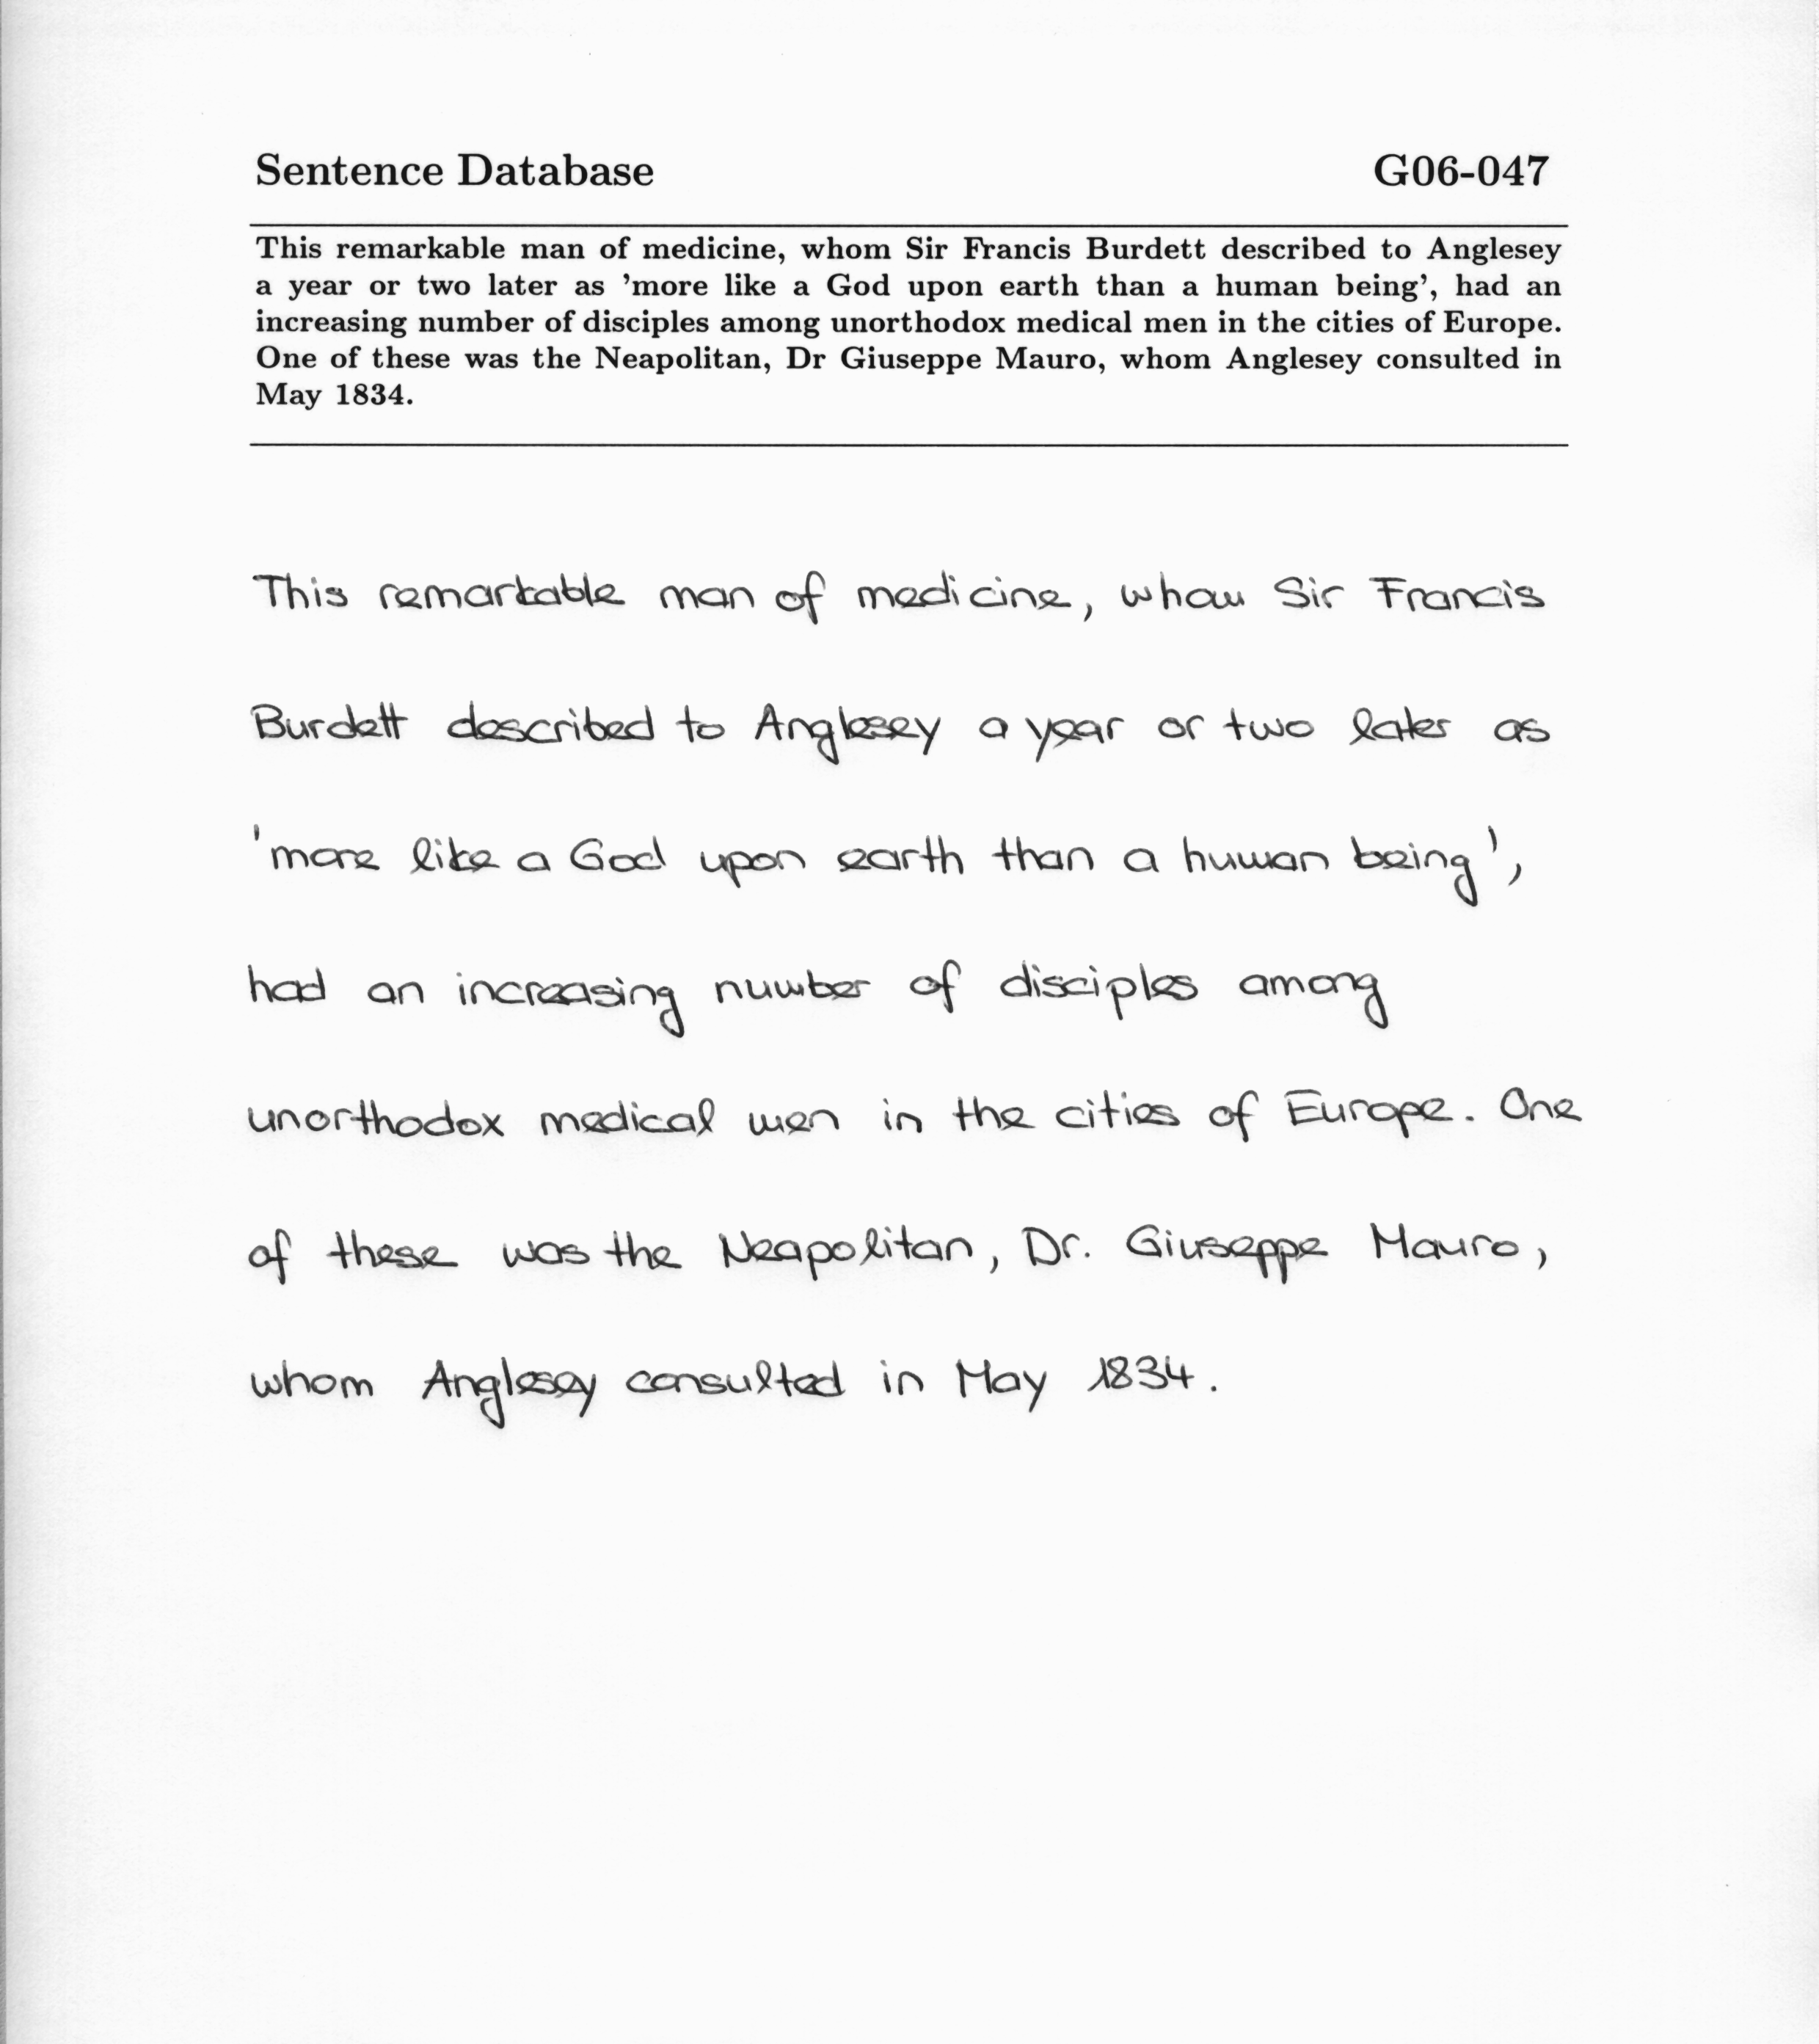 Sentence Database G06-047
This remarkable man of medicine, whom Sir Francis Burdett described to Anglesey
a year or two later as 'more like a God upon earth than a human being', had an
increasing number of disciples among unorthodox medical men in the cities of Europe.
One of these was the Neapolitan, Dr Giuseppe Mauro, whom Anglesey consulted in
May 1834.
This remarkable man of medicine, whom Sir Francis
Burdett described to Anglesey a year or two later as
'more like a God upon earth than a human being',
had an increasing number of disciples among
unorthodox medical men in the cities of Europe. One
of these was the Neapolitan, Dr. Giuseppe Mauro,
whom Anglesey consulted in May 1834.